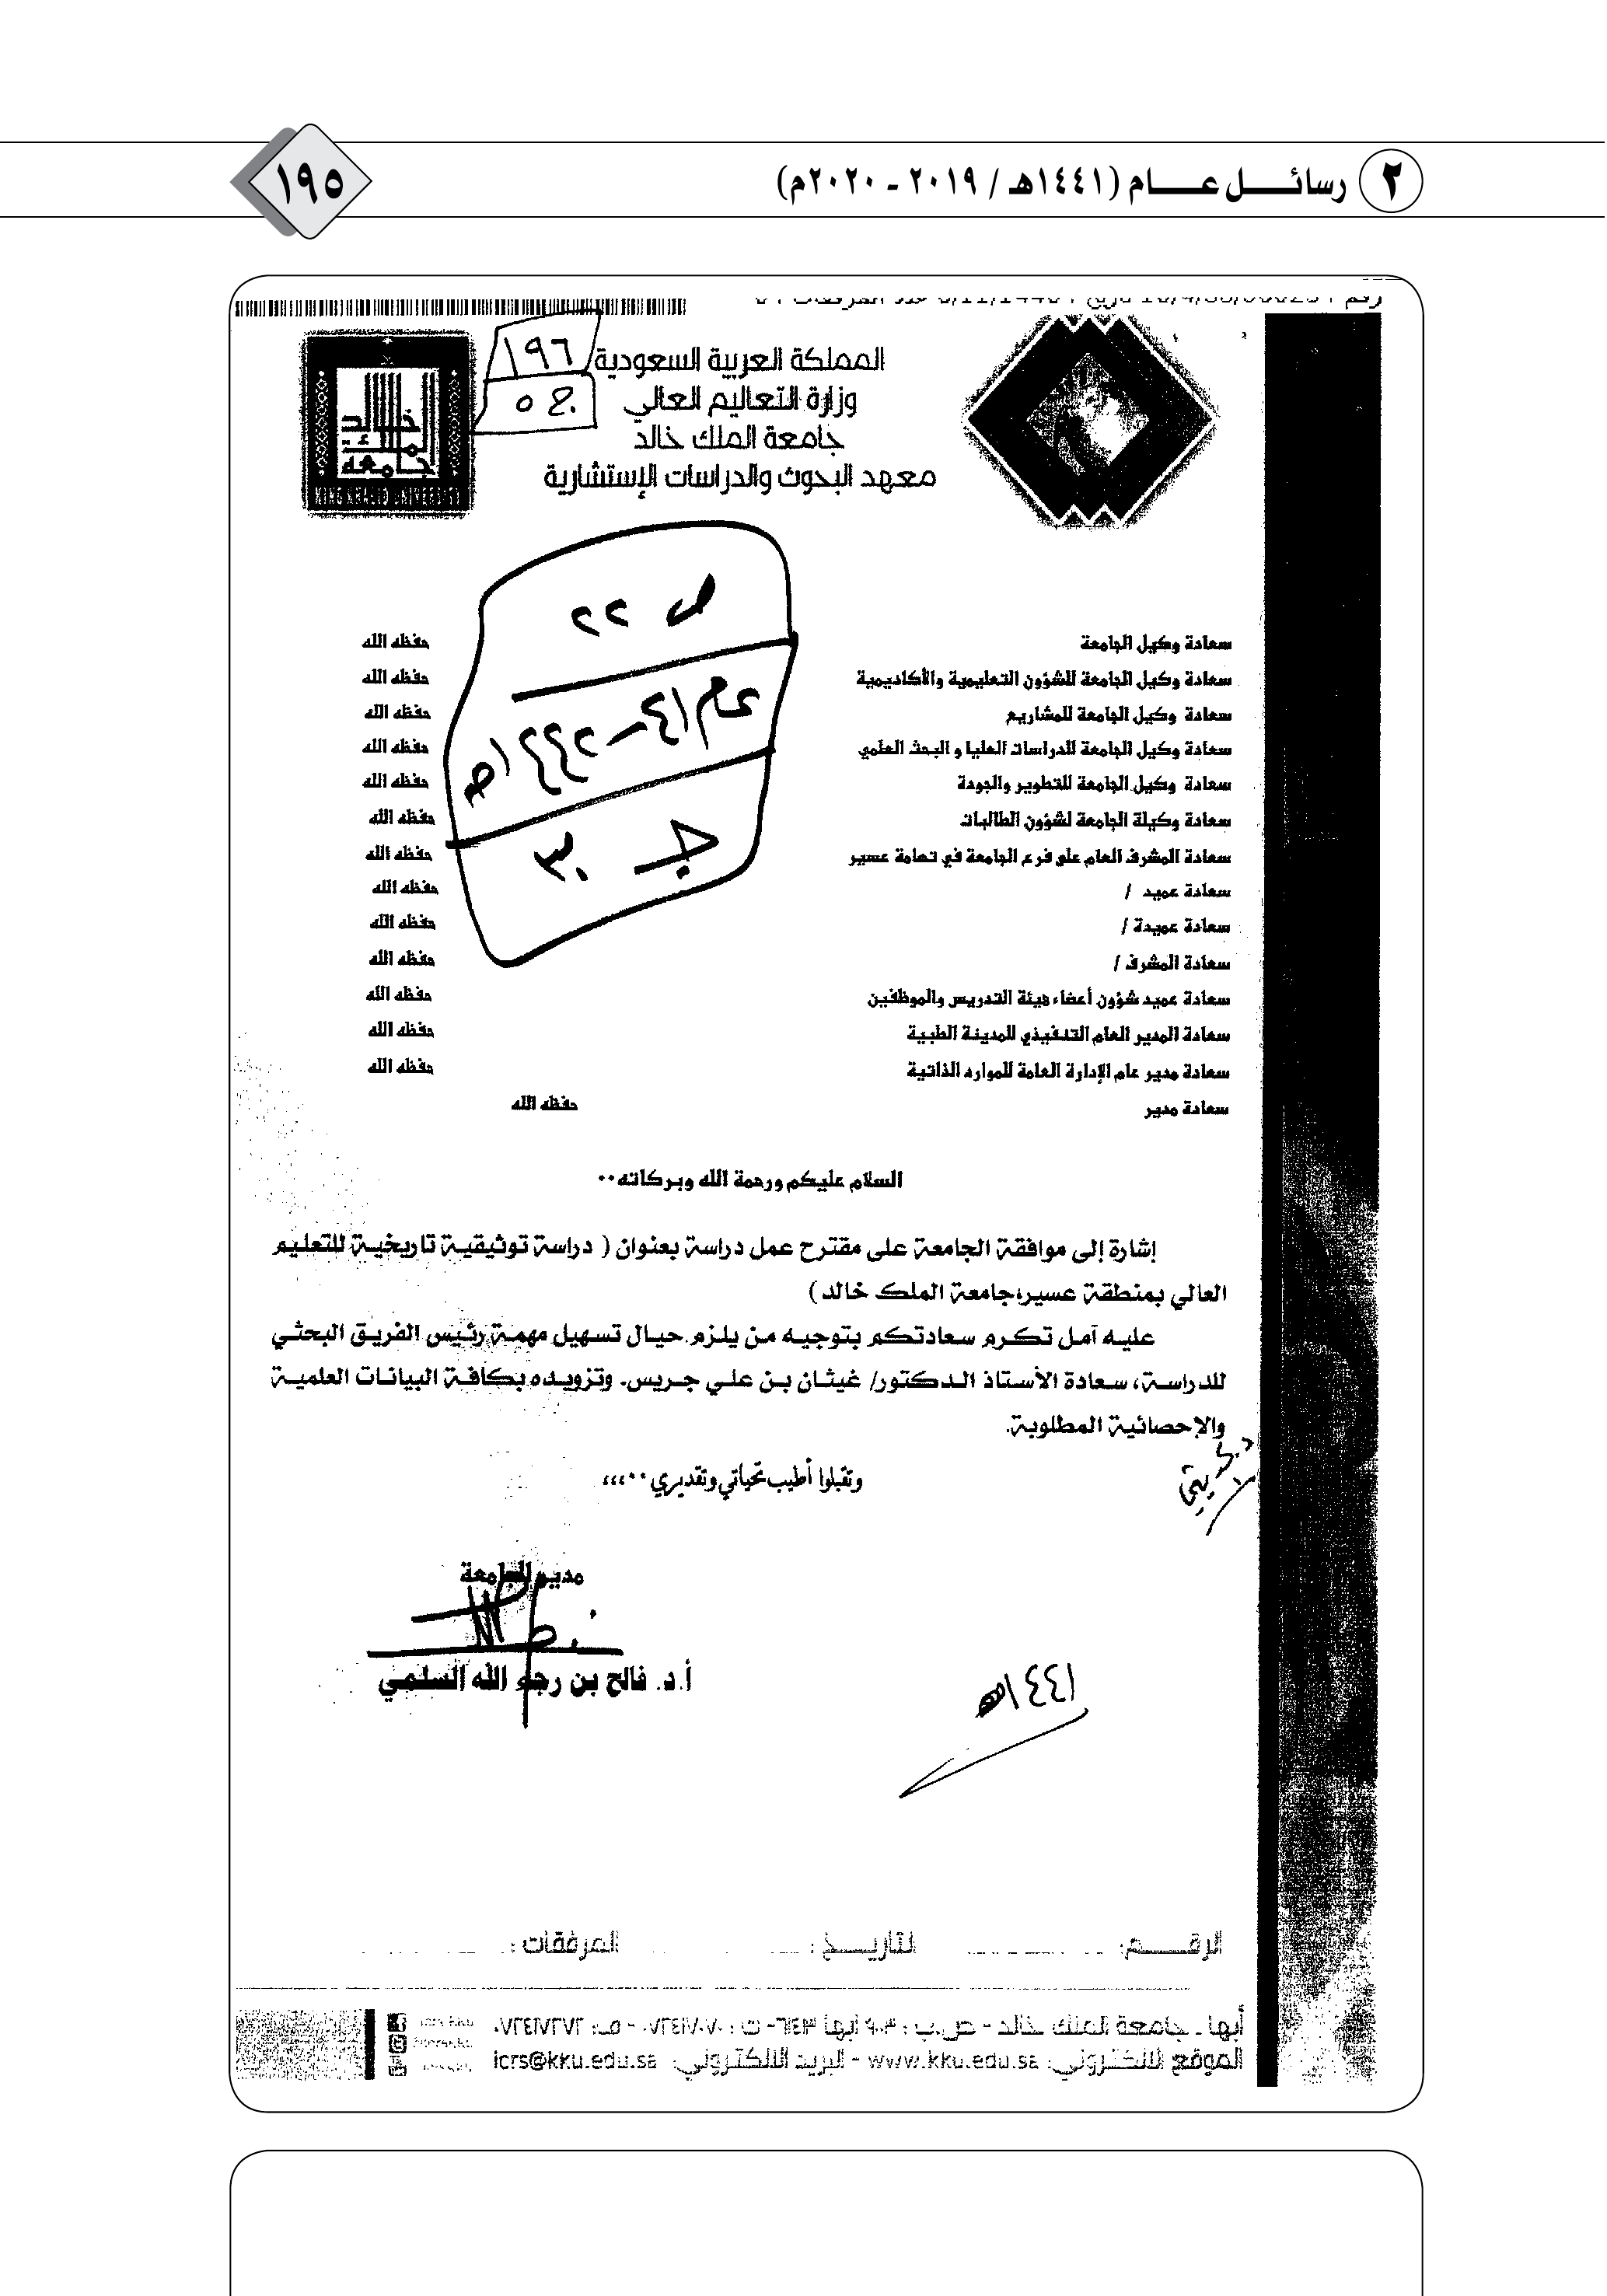 ٢ رسائـــل عـــــام (١٤٤١هـ / ٢٠١٩ - ٢٠٢٠م)
١٩٥
المملكة العربية السعودية
وزارة التعاليم العالي
جامعة الملك خالد
معهد البحوث والدراسات الإستشارية
١٩٦
ج. ٥
جامعة الملك خالد
KING KHALID UNIVERSITY
ص ٢٢
عام ٤١ – ١٤٤٢هـ
جـ ٣٠
سعادة وكيل الجامعة حفظه الله
سعادة وكيل الجامعة للشؤون التعليمية والأكاديمية حفظه الله
سعادة وكيل الجامعة للمشاريع حفظه الله
سعادة وكيل الجامعة للدراسات العليا و البحث العلمي حفظه الله
سعادة وكيل الجامعة للتطوير والجودة حفظه الله
سعادة وكيلة الجامعة لشؤون الطالبات حفظه الله
سعادة المشرف العام على فرع الجامعة في تهامة عسير حفظه الله
سعادة عميد / حفظه الله
سعادة عميدة / حفظه الله
سعادة المشرف / حفظه الله
سعادة عميد شؤون أعضاء هيئة التدريس والموظفين حفظه الله
سعادة المدير العام التنفيذي للمدينة الطبية حفظه الله
سعادة مدير عام الإدارة العامة للموارد الذاتية حفظه الله
سعادة مدير حفظه الله
السلام عليكم ورحمة الله وبركاته٠٠
إشارة إلى موافقة الجامعة على مقترح عمل دراسة بعنوان ( دراسة توثيقية تاريخية للتعليم
العالي بمنطقة عسير،جامعة الملك خالد )
عليه آمل تكرم سعادتكم بتوجيه من يلزم حيال تسهيل مهمة رئيس الفريق البحثي
للدراسة، سعادة الأستاذ الدكتور/ غيثان بن علي جريس. وتزويده بكافة البيانات العلمية
والإحصائية المطلوبة.
وتقبلوا أطيب تحياتي وتقديري ٠٠،،،
مدير الجامعة
أ.د. فالح بن رجاء الله السلمي
١٤٤١هـ
الرقــــم: التاريــــخ : المرفقات :
أبها ـ جامعة الملك خالد - ص.ب : ٩٠٠٣ أبها ٦١٤١٣- ت : ٠٧٢٤١٧٠٧٠ - ف: ٠٧٢٤١٧٢٧٢
الموقع الالكتروني: www.kku.edu.sa - البريد الالكتروني: icrs@kku.edu.sa